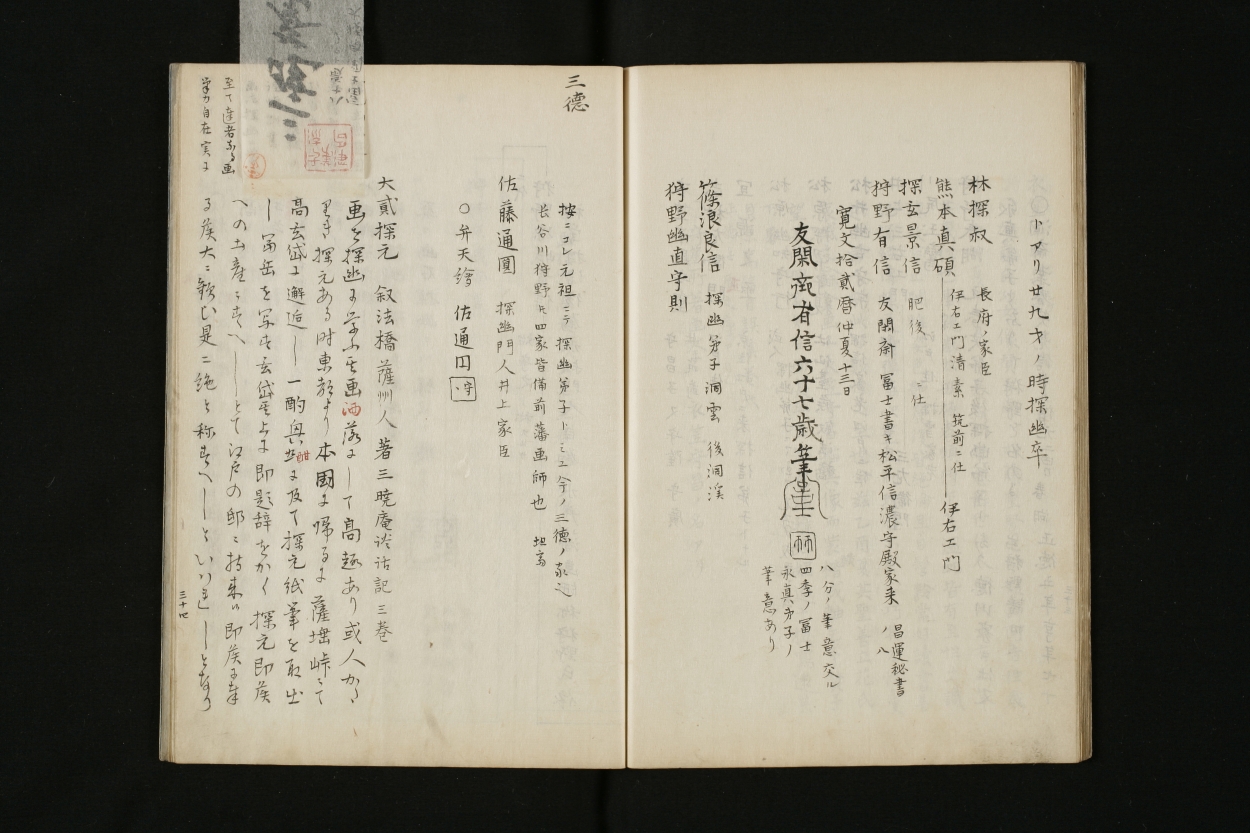 トアリ廿九才ノ時探幽卒
林探叔 長府ノ家臣
熊本真碩 伊右エ門清素 筑前ニ仕 伊右エ門
探玄景信 肥後ニ仕
狩野有信 友閑斎 冨士書キ松平信濃守殿家来 昌運秘書ノ八
寛文拾貳暦仲夏十三日
友閑斎有信六十七歳筆
八分ノ筆意交ル
四季ノ冨士
永真弟子ノ
筆意あり
篠浪良信 探幽弟子洞雲 後洞渓
狩野幽直守則
三德
按ニコレ元祖ニテ探幽弟子トミユ今ノ三徳ノ家
長谷川狩野 四家皆備前藩画師也
佐藤通圓 探幽門人井上家臣
〇弁天繪 佐通円 守
大貳探元 叙法橋薩州人 著三暁庵談話記三巻
画を探幽に学ふ其画洒落にして高趣あり或人かゝ
りき探元ある時東都より本國に帰るに薩埵峠にて
高玄岱に邂逅し一酌興酣に及て探元紙筆を取出
し冨岳を写す玄岱其上に即題辞をかく探元即侯
への土産にすへしとて江戸の邸に持来り即侯に奉
る侯大ニ歓ひ是ニ絶と称すへしといはれしとなり
至て達者なる画
筆力自在実に
三十七